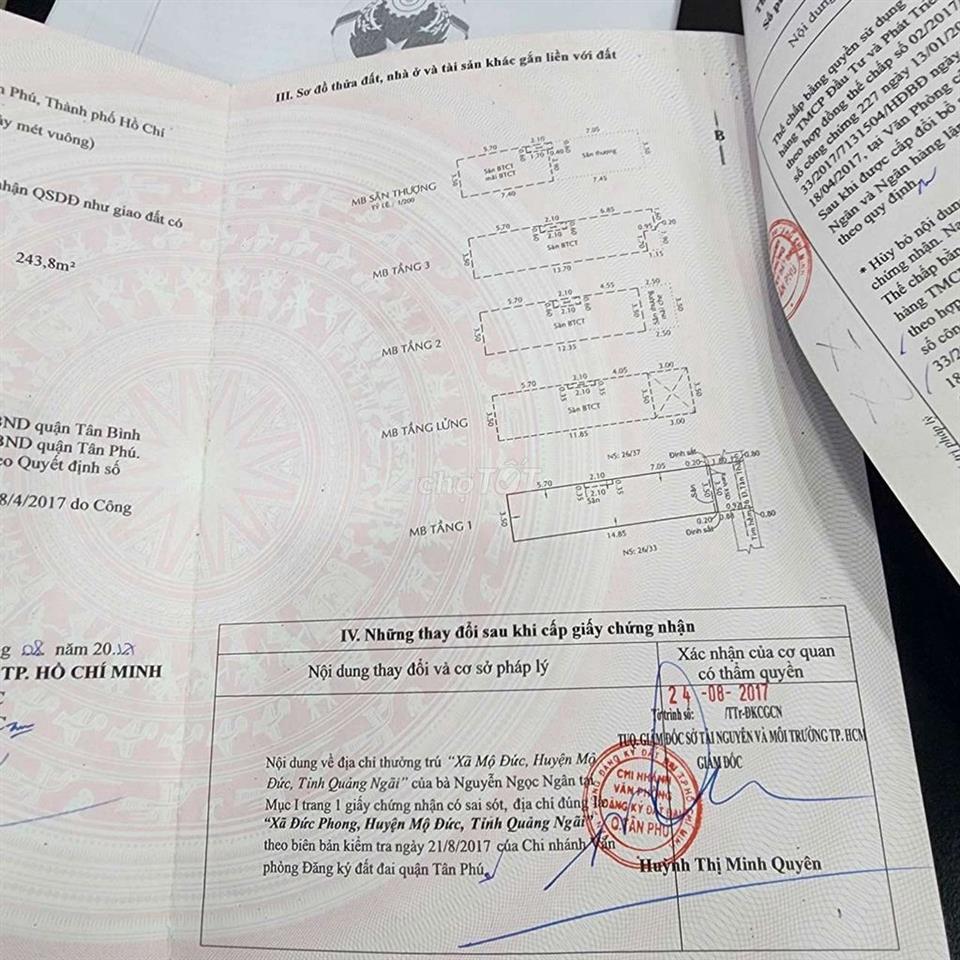 n Phú, Thành phố Hồ Chí
ảy mét vuông)
nhận QSDĐ như giao đất có
243,8m²
BND quận Tân Bình
BND quận Tân Phú.
eo Quyết định số
8/4/2017 do Công
g 08 năm 20
TP. HỒ CHÍ MINH
III. Sơ đồ thửa đất, nhà ở và tài sản khác gắn liền với đất
B
MB SÂN THƯỢNG
TỶ LỆ: 1/200
5.70 2.10 7.05
3.50 Sàn BTCT
mái BTCT
Sân thượng 3.50
7.40 7.45
MB TẦNG 3
5.70 2.10 6.85
3.50 2.10 0.95 0.20
Sàn BTCT
13.70 1.15
MB TẦNG 2
5.70 2.10 4.55 2.50
3.50 2.10 3.50
Sàn BTCT
12.35 2.50
MB TẦNG LỬNG
5.70 2.10 4.05 3.00
3.50 0.35 2.10 0.35 3.50 3.50
Sàn BTCT
11.85 3.00
MB TẦNG 1
NS: 26/37
Đinh sắt 0.20 1.80 0.80
5.70 2.10 7.05
3.50 0.35 2.10 0.35 3.50
Sàn
14.85 0.20 0.88 0.80
Đinh sắt
NS: 26/33
chợTỐT
IV. Những thay đổi sau khi cấp giấy chứng nhận
Nội dung thay đổi và cơ sở pháp lý
Xác nhận của cơ quan
có thẩm quyền
24 -08- 2017
Tờ trình số: /TTr-ĐKCGCN
TUQ.GIÁM ĐỐC SỞ TÀI NGUYÊN VÀ MÔI TRƯỜNG TP. HCM
GIÁM ĐỐC
Nội dung về địa chỉ thường trú "Xã Mộ Đức, Huyện Mộ
Đức, Tỉnh Quảng Ngãi" của bà Nguyễn Ngọc Ngân tại
Mục I trang 1 giấy chứng nhận có sai sót, địa chỉ đúng là
"Xã Đức Phong, Huyện Mộ Đức, Tỉnh Quảng Ngãi"
theo biên bản kiểm tra ngày 21/8/2017 của Chi nhánh Văn
phòng Đăng ký đất đai quận Tân Phú.
CHI NHÁNH
VĂN PHÒNG
ĐĂNG KÝ ĐẤT ĐAI
Q.TÂN PHÚ
Huỳnh Thị Minh Quyên
Nội dung
Thế chấp bằng quyền sử dụng
hàng TMCP Đầu Tư và Phát Triể
theo hợp đồng thế chấp số 02/2017
33/2017/7131504/HĐBĐ ngày
số công chứng 227 ngày 13/01/20
18/04/2017, tại Văn Phòng c
Sau khi được cấp đổi bổ
Ngân và Ngân hàng lập
theo quy định.
* Hủy bỏ nội dung
chứng nhận. Na
Thế chấp bằn
hàng TMCP
theo hợp
số côn
33/2
18